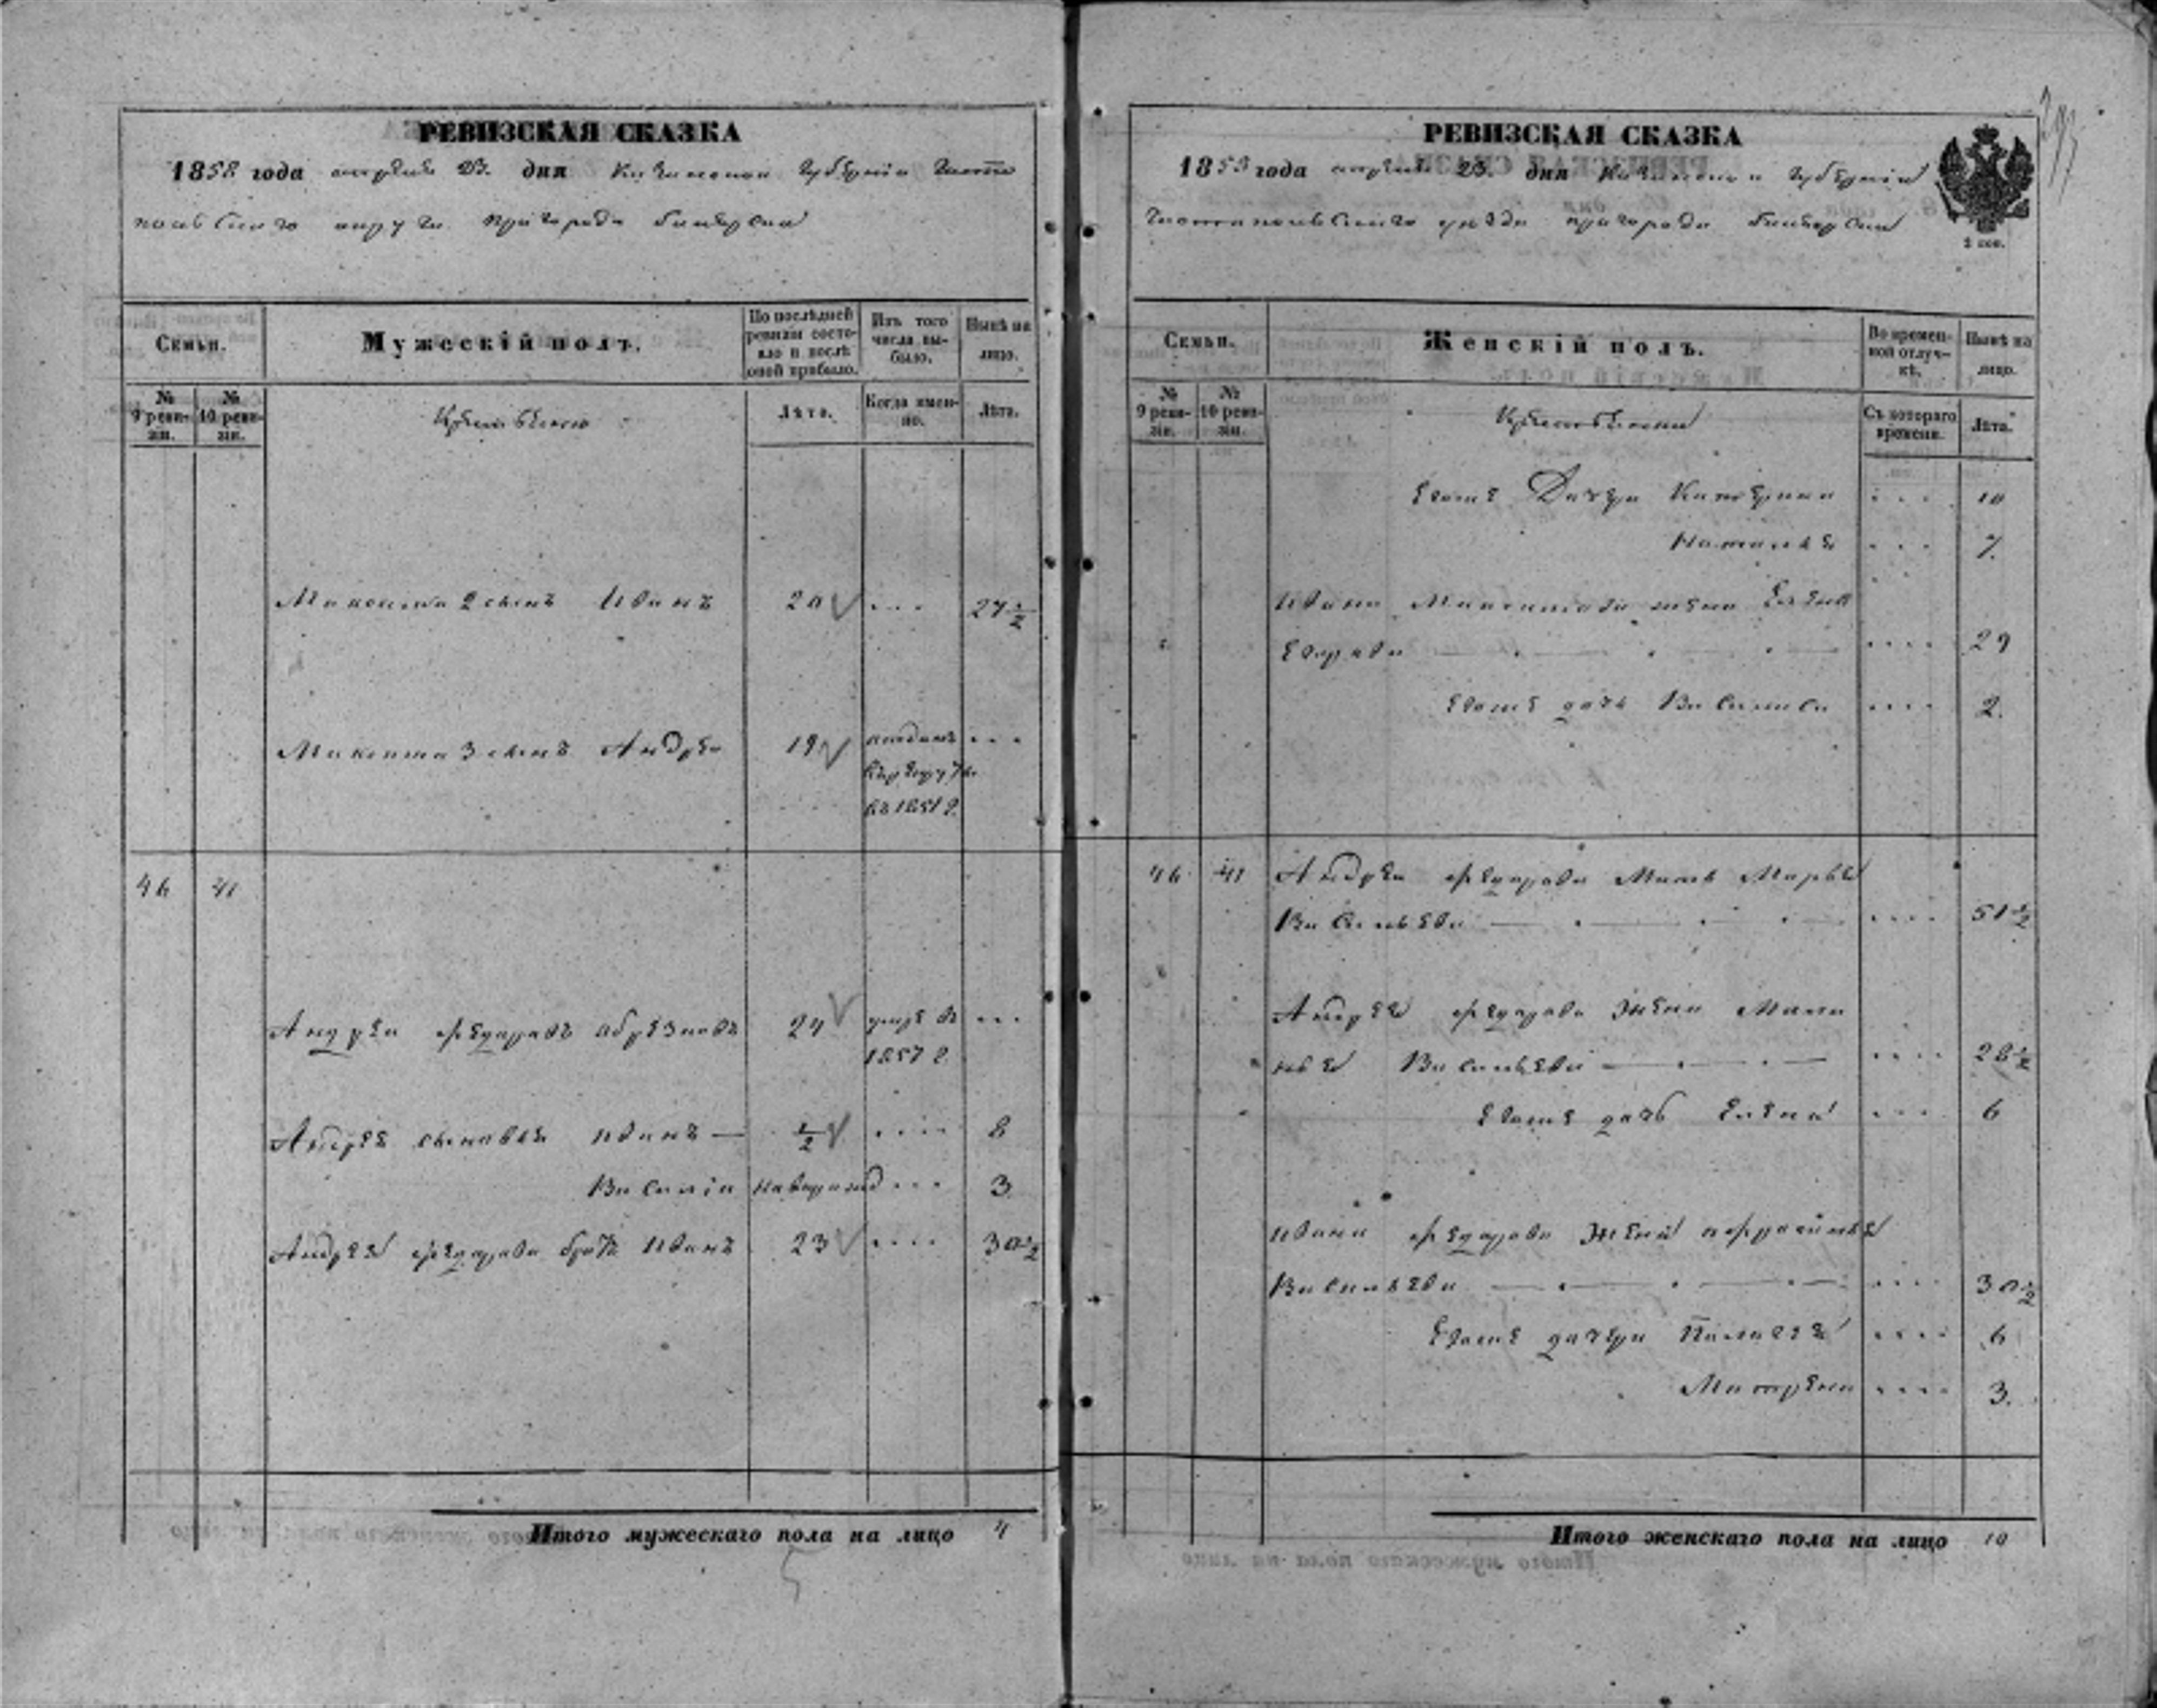 РЕВИЗСКАЯ СКАЗКА
1858 года апреля 23. дня Казанской Губернiи Чисто
польскаго округа пригорода Билярска
Семьи.
Мужескiй полъ.
По послѣдней ревизiи состояло и послѣ оной прибыло.
Изъ того числа выбыло.
Нынѣ на лицо.
№ 9 ревизiи.
№ 10 ревизiи.
Лѣта.
Когда именно.
Лѣта.
Максима 2 сынъ Иванъ 20 ... 27 1/2
Максима 3 сынъ Андрей 19 отданъ ...
въ рекруты
въ 1851 г.
46 41
Андрей Федоровъ 24 умре въ ...
1857 г.
Андрея сыновья Иванъ — 1/2 .... 8
Василiй ... 3
Андрея Федорова братъ Иванъ 23 .... 30 1/2
Итого мужескаго пола на лицо 4
5
РЕВИЗСКАЯ СКАЗКА
1858 года апреля 23. дня Казанской Губернiи
Чистопольскаго уезда пригорода Билярска
Семьи.
Женскiй полъ.
Во временной отлучкѣ.
Нынѣ на лицо.
№ 9 ревизiи.
№ 10 ревизiи.
Съ котораго времени.
Лѣта.
Евоже Дочери Катерина ... 10
Наталья ... 7.
Ивана Максимова жена Елена
.... 29
Евоже дочь Василиса .... 2.
46 41 Андрея Федорова Мать Марья
Васильева .... 51 1/2
Андрея Федорова Жена Мала
нья Васильева .... 28 1/2
Евоже дочь Елена ... 6
Ивана Федорова Жена
Васильева .... 30 1/2
Евоже дочери Палагея .... 6
Матрена .... 3.
Итого женскаго пола на лицо 10